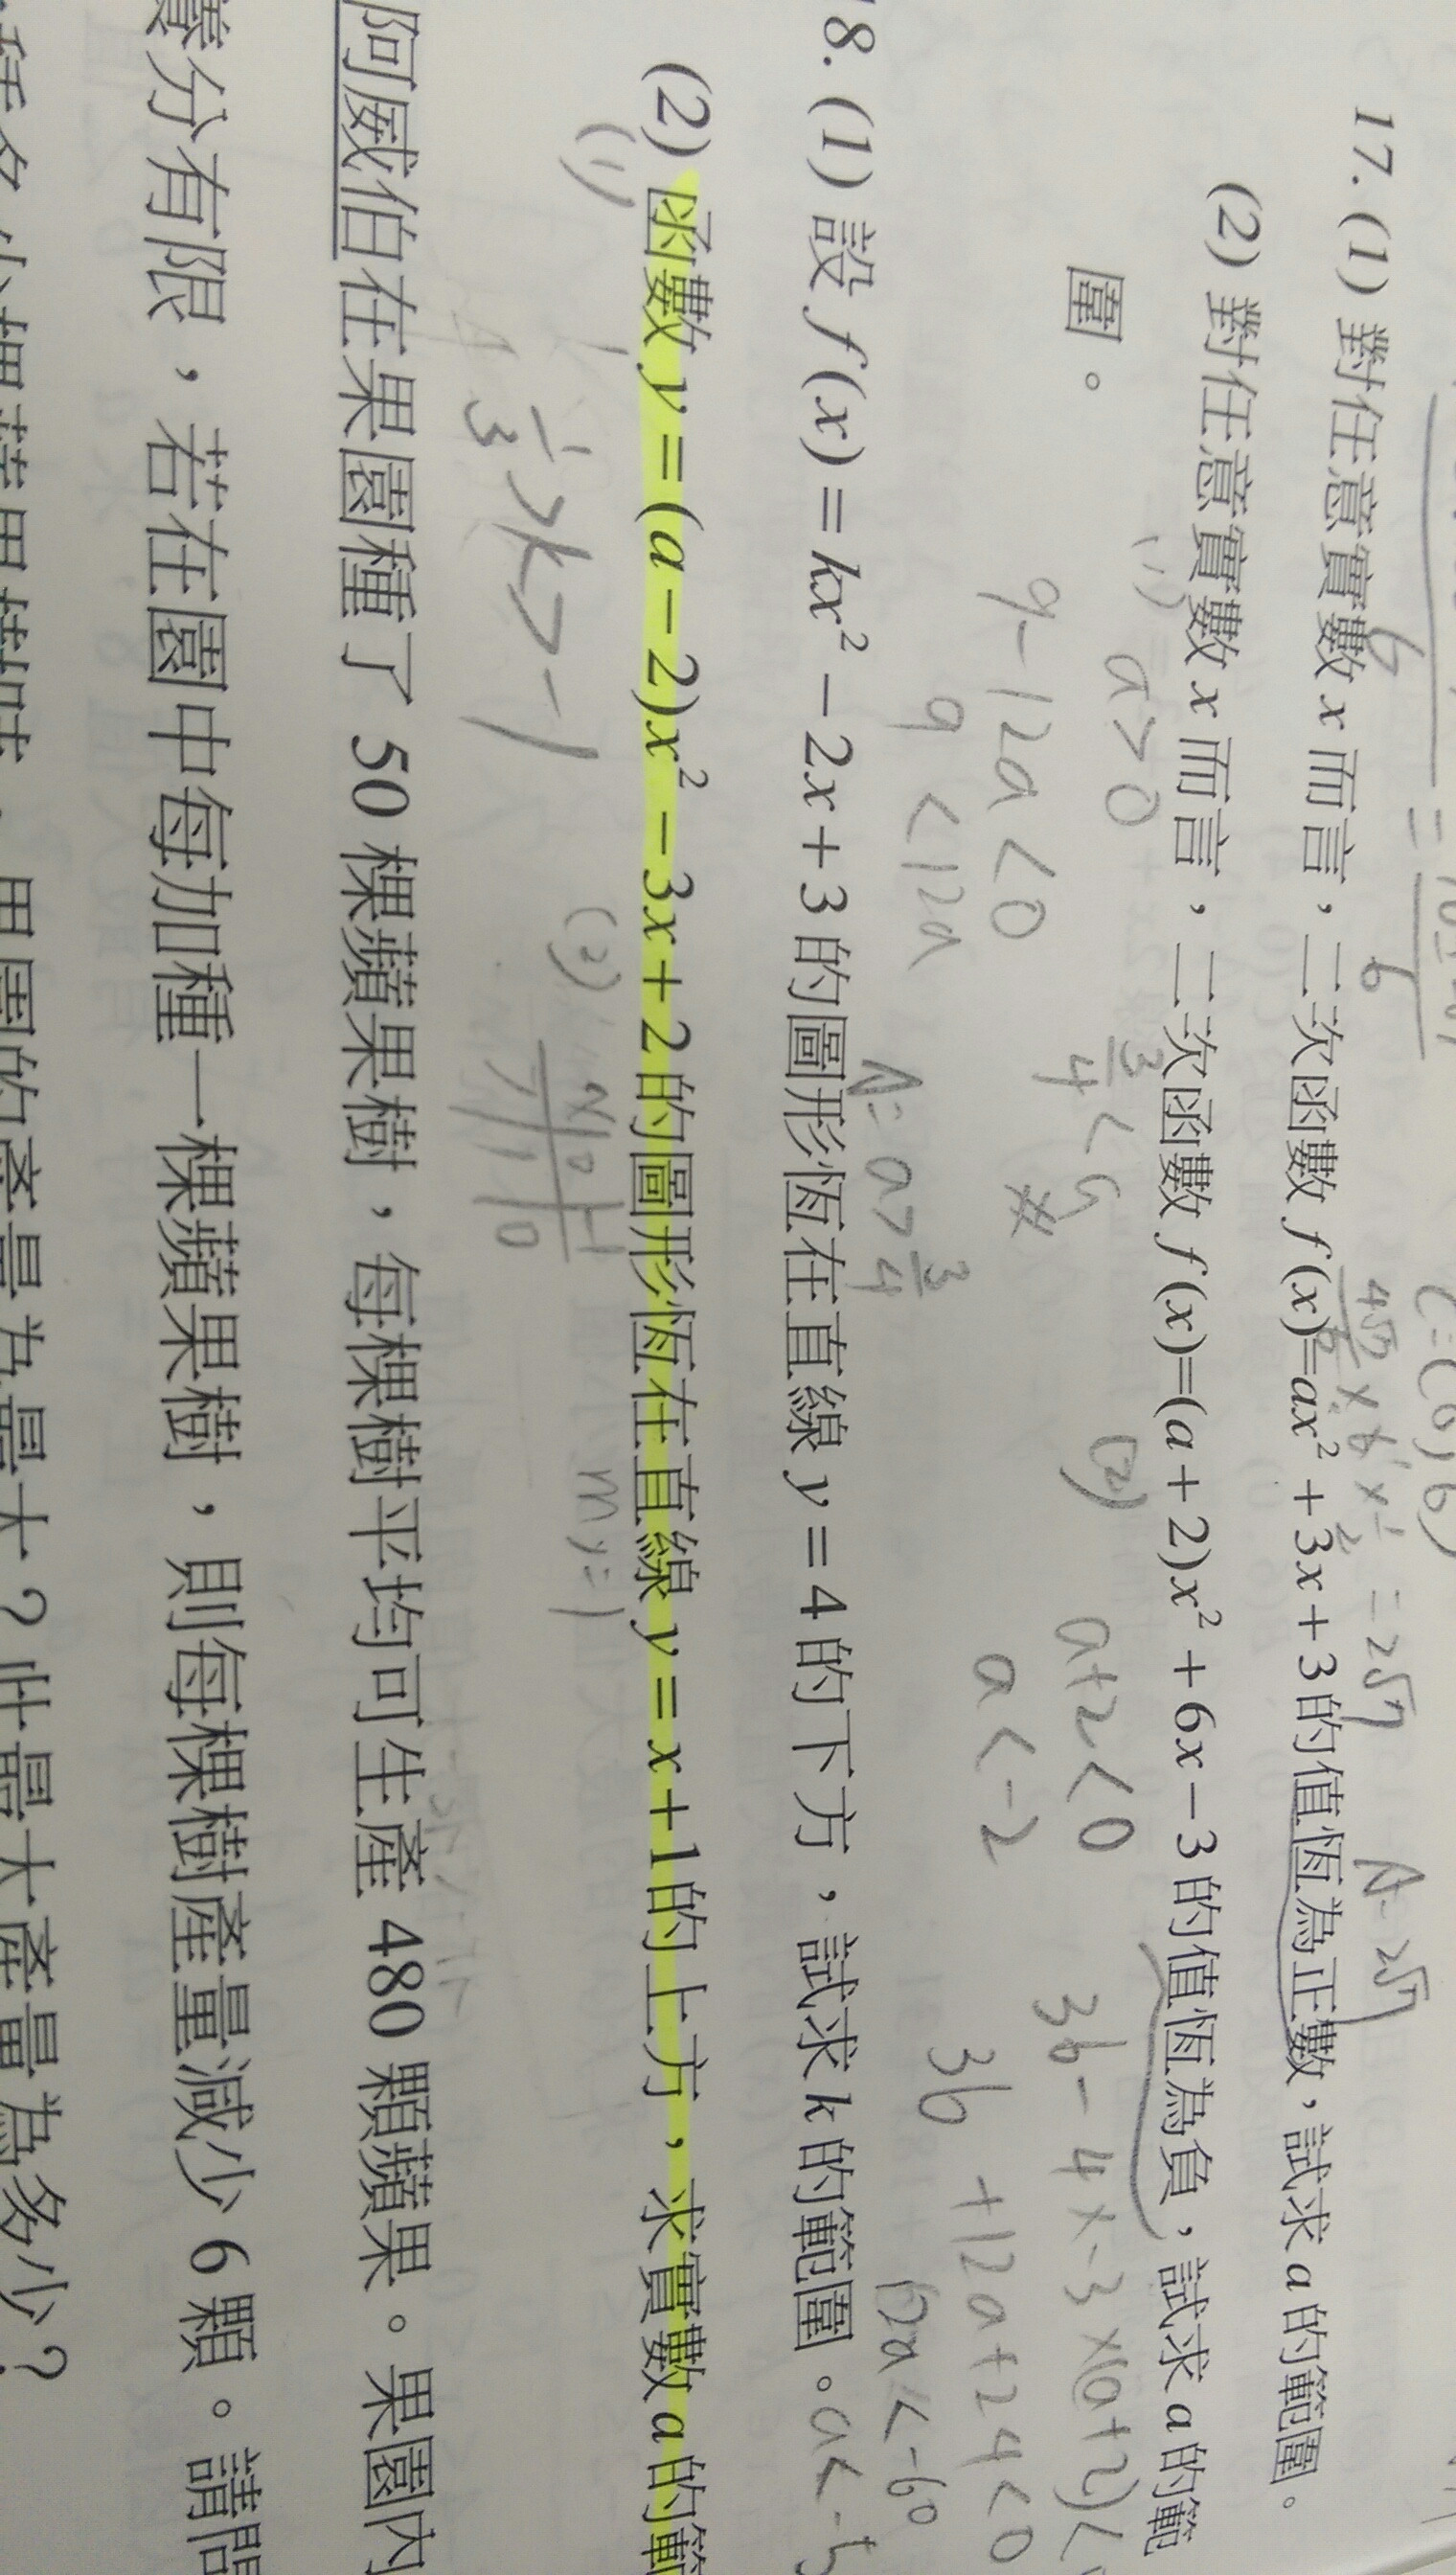 17. (1) 對任意實數 x 而言，二次函數 f(x)=ax² + 3x + 3 的值恆為正數，試求 a 的範圍。
(2) 對任意實數 x 而言，二次函數 f(x)=(a + 2)x² + 6x − 3 的值恆為負，試求 a 的範
圍。
a > 0
9 - 12a < 0
9 < 12a
3/4 < a
A: a > 3/4
(2)
a+2 < 0
a < -2
36 - 4 × -3 × (a+2) <
36 + 12a + 24 < 0
12a < -60
a < -5
18. (1) 設 f(x) = kx² − 2x + 3 的圖形恆在直線 y = 4 的下方，試求 k 的範圍。
(2) 函數 y = (a − 2)x² − 3x + 2 的圖形恆在直線 y = x + 1 的上方，求實數 a 的範
(1)
1/3 > k > -1
(2)
x 0 -1
y 1 0
m y = 1
阿威伯在果園種了 50 棵蘋果樹，每棵樹平均可生產 480 顆蘋果。果園內
養分有限，若在園中每加種一棵蘋果樹，則每棵樹產量減少 6 顆。請問
果園的產量為最大？此最大產量為多少？